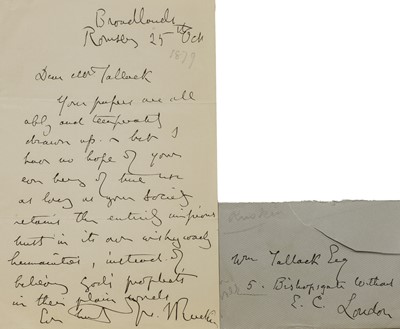 Broadlands
Romsey 25th Oct
1879
Dear Mr Tallack
Your papers are all
ably and temperately
drawn up - but I
have no hope of your
ever being of true use
as long as your Society
retains the entirely impious
trust in its own wishy washy
humanities, instead of
believing God's prophets
in their plain words
Ever truly yrs J Ruskin
Ruskin
Wm Tallack Esq
5. Bishopsgate Without
E. C. London